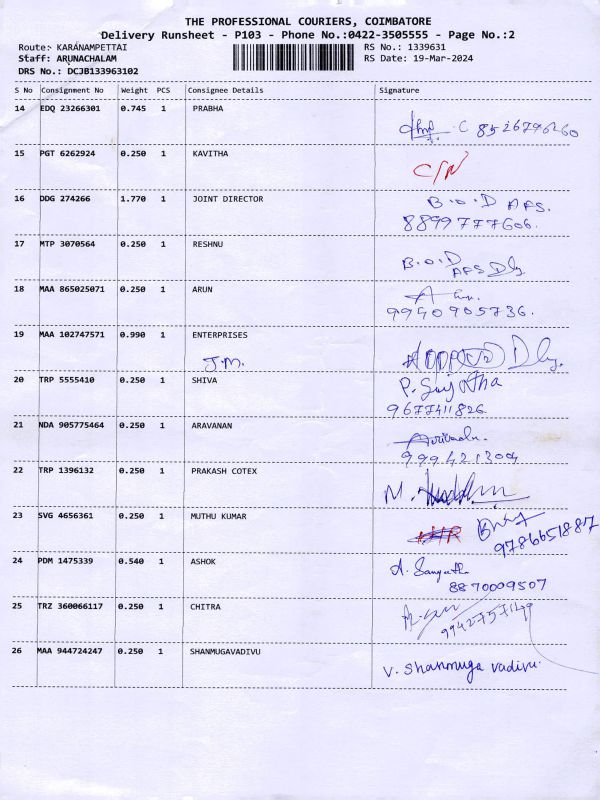 THE PROFESSIONAL COURIERS, COIMBATORE
Delivery Runsheet - P103 - Phone No.:0422-3505555 - Page No.:2
Route: KARANAMPETTAI RS No.: 1339631
Staff: ARUNACHALAM RS Date: 19-Mar-2024
DRS No.: DCJB133963102
S No Consignment No Weight PCS Consignee Details Signature
14 EDQ 23266301 0.745 1 PRABHA
C 8526796260
15 PGT 6262924 0.250 1 KAVITHA
C/N
16 DDG 274266 1.770 1 JOINT DIRECTOR B.O.D AFS.
8899777606.
17 MTP 3070564 0.250 1 RESHNU
B.O.D
AFS Dly
18 MAA 865025071 0.250 1 ARUN
9940905736.
19 MAA 102747571 0.990 1 ENTERPRISES
J.M. Dly.
20 TRP 5555410 0.250 1 SHIVA P. Sujatha
9677411826
21 NDA 905775464 0.250 1 ARAVANAN
9994213004
22 TRP 1396132 0.250 1 PRAKASH COTEX
M.
23 SVG 4656361 0.250 1 MUTHU KUMAR
9786651887
24 PDM 1475339 0.540 1 ASHOK
A. Sangatha
8870009507
25 TRZ 360066117 0.250 1 CHITRA
26 MAA 944724247 0.250 1 SHANMUGAVADIVU
V. Shanmuga vadivu.